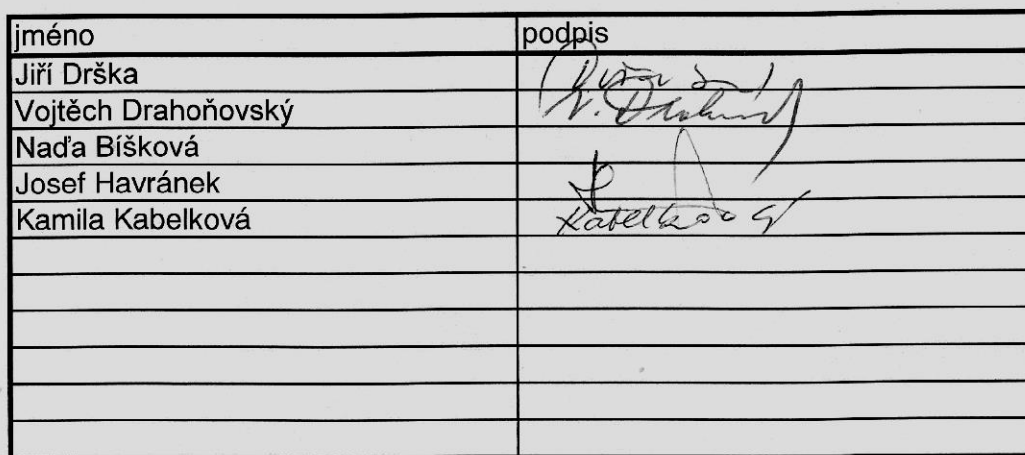 jméno podpis
Jiří Drška
Vojtěch Drahoňovský V.
Naďa Bíšková
Josef Havránek
Kamila Kabelková Kabelková